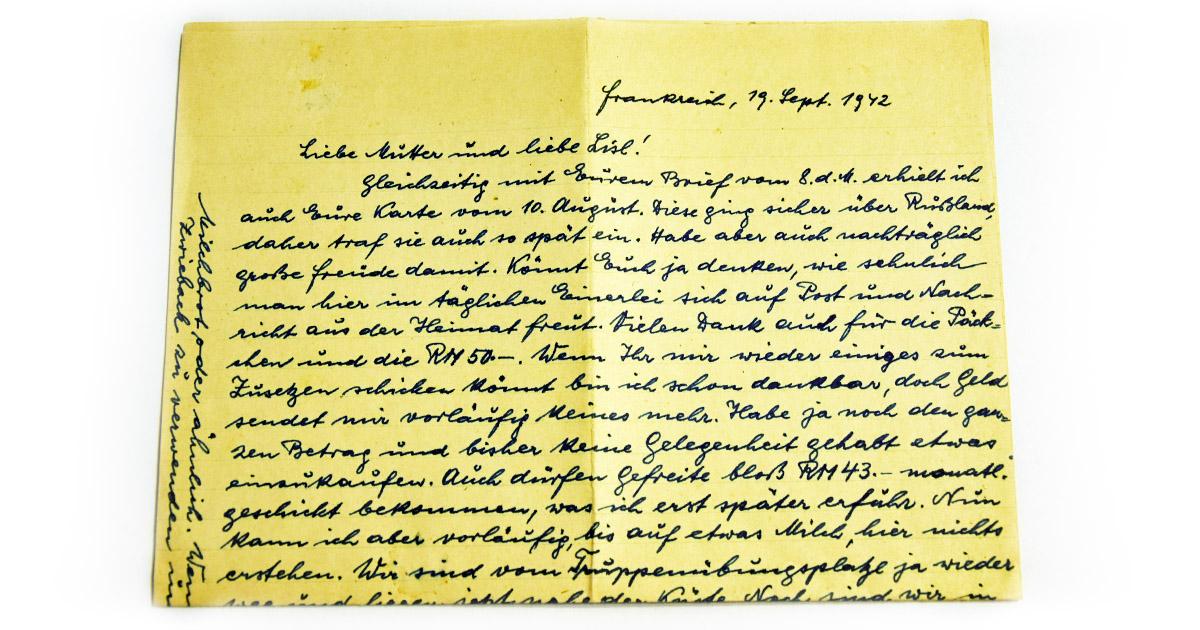 Frankreich, 19. Sept. 1942
Liebe Mutter und liebe Lisl!
Gleichzeitig mit Eurem Brief vom 8. d. M. erhielt ich
auch Eure Karte vom 10. August. Diese ging sicher über Rußland,
daher traf sie auch so spät ein. Habe aber auch nachträglich
große Freude damit. Könnt Euch ja denken, wie sehnlich
man hier im täglichen Einerlei sich auf Post und Nach-
richt aus der Heimat freut. Vielen Dank auch für die Päck-
chen und die RM 50.-. Wenn Ihr mir wieder einiges zum
Zusetzen schicken könnt bin ich schon dankbar, doch Geld
sendet mir vorläufig keines mehr. Habe ja noch den gan-
zen Betrag und bisher keine Gelegenheit gehabt etwas
einzukaufen. Auch dürfen Gefreite bloß RM 43.- monatl.
geschickt bekommen, was ich erst später erfuhr. Nun
kann ich aber vorläufig, bis auf etwas Milch, hier nichts
erstehen. Wir sind vom Truppenübungsplatze ja wieder
weg und liegen jetzt nahe der Küste. Noch sind wir in
Milchbrot oder ähnlich. Wenn
Zwieback zu verwenden